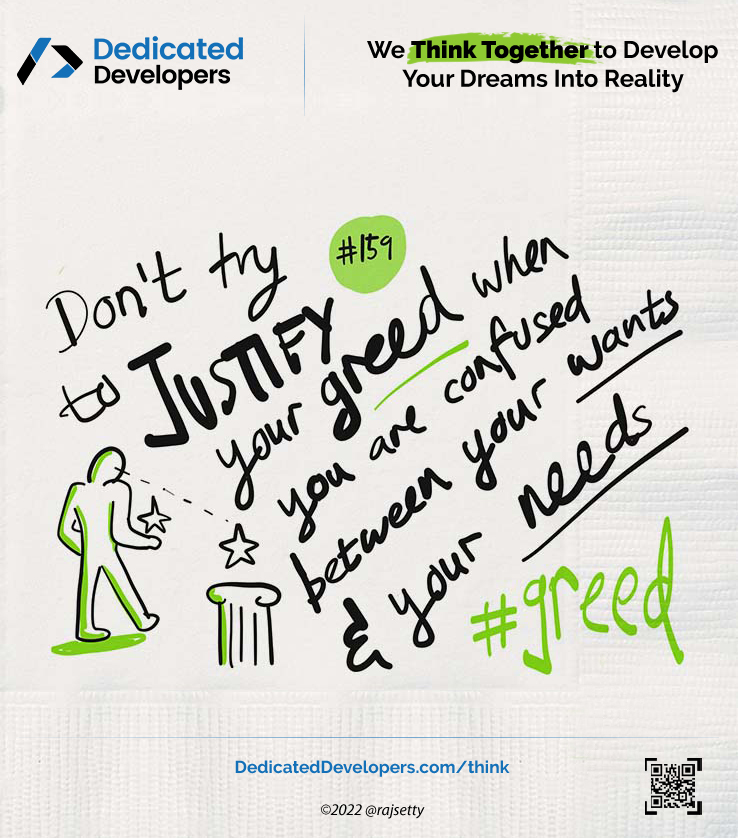 Dedicated
Developers
We Think Together to Develop
Your Dreams Into Reality
#159
Don't try
to JUSTIFY
your greed when
you are confused
between your wants
& your needs
#greed
DedicatedDevelopers.com/think
©2022 @rajsetty